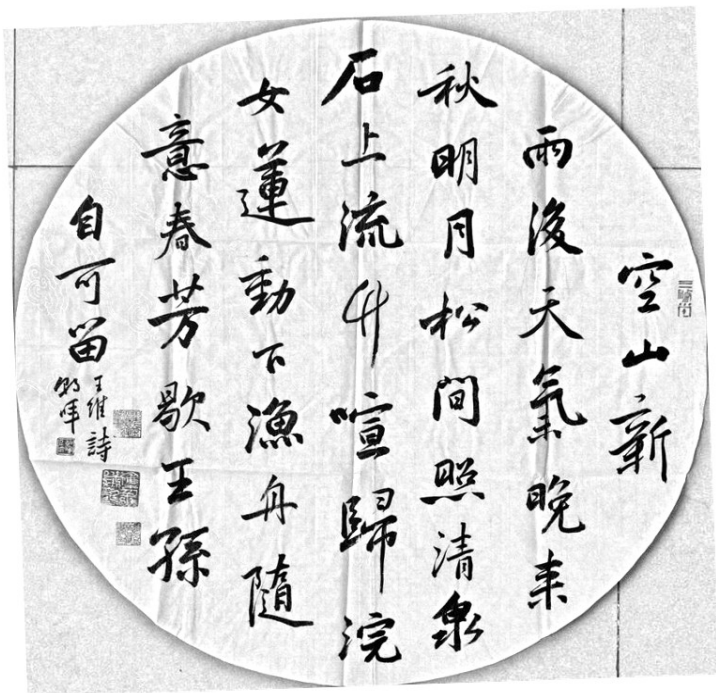 空山新
雨後天氣晚来
秋明月松間照清泉
石上流竹喧歸浣
女蓮動下漁舟隨
意春芳歇王孫
自可留
王維詩